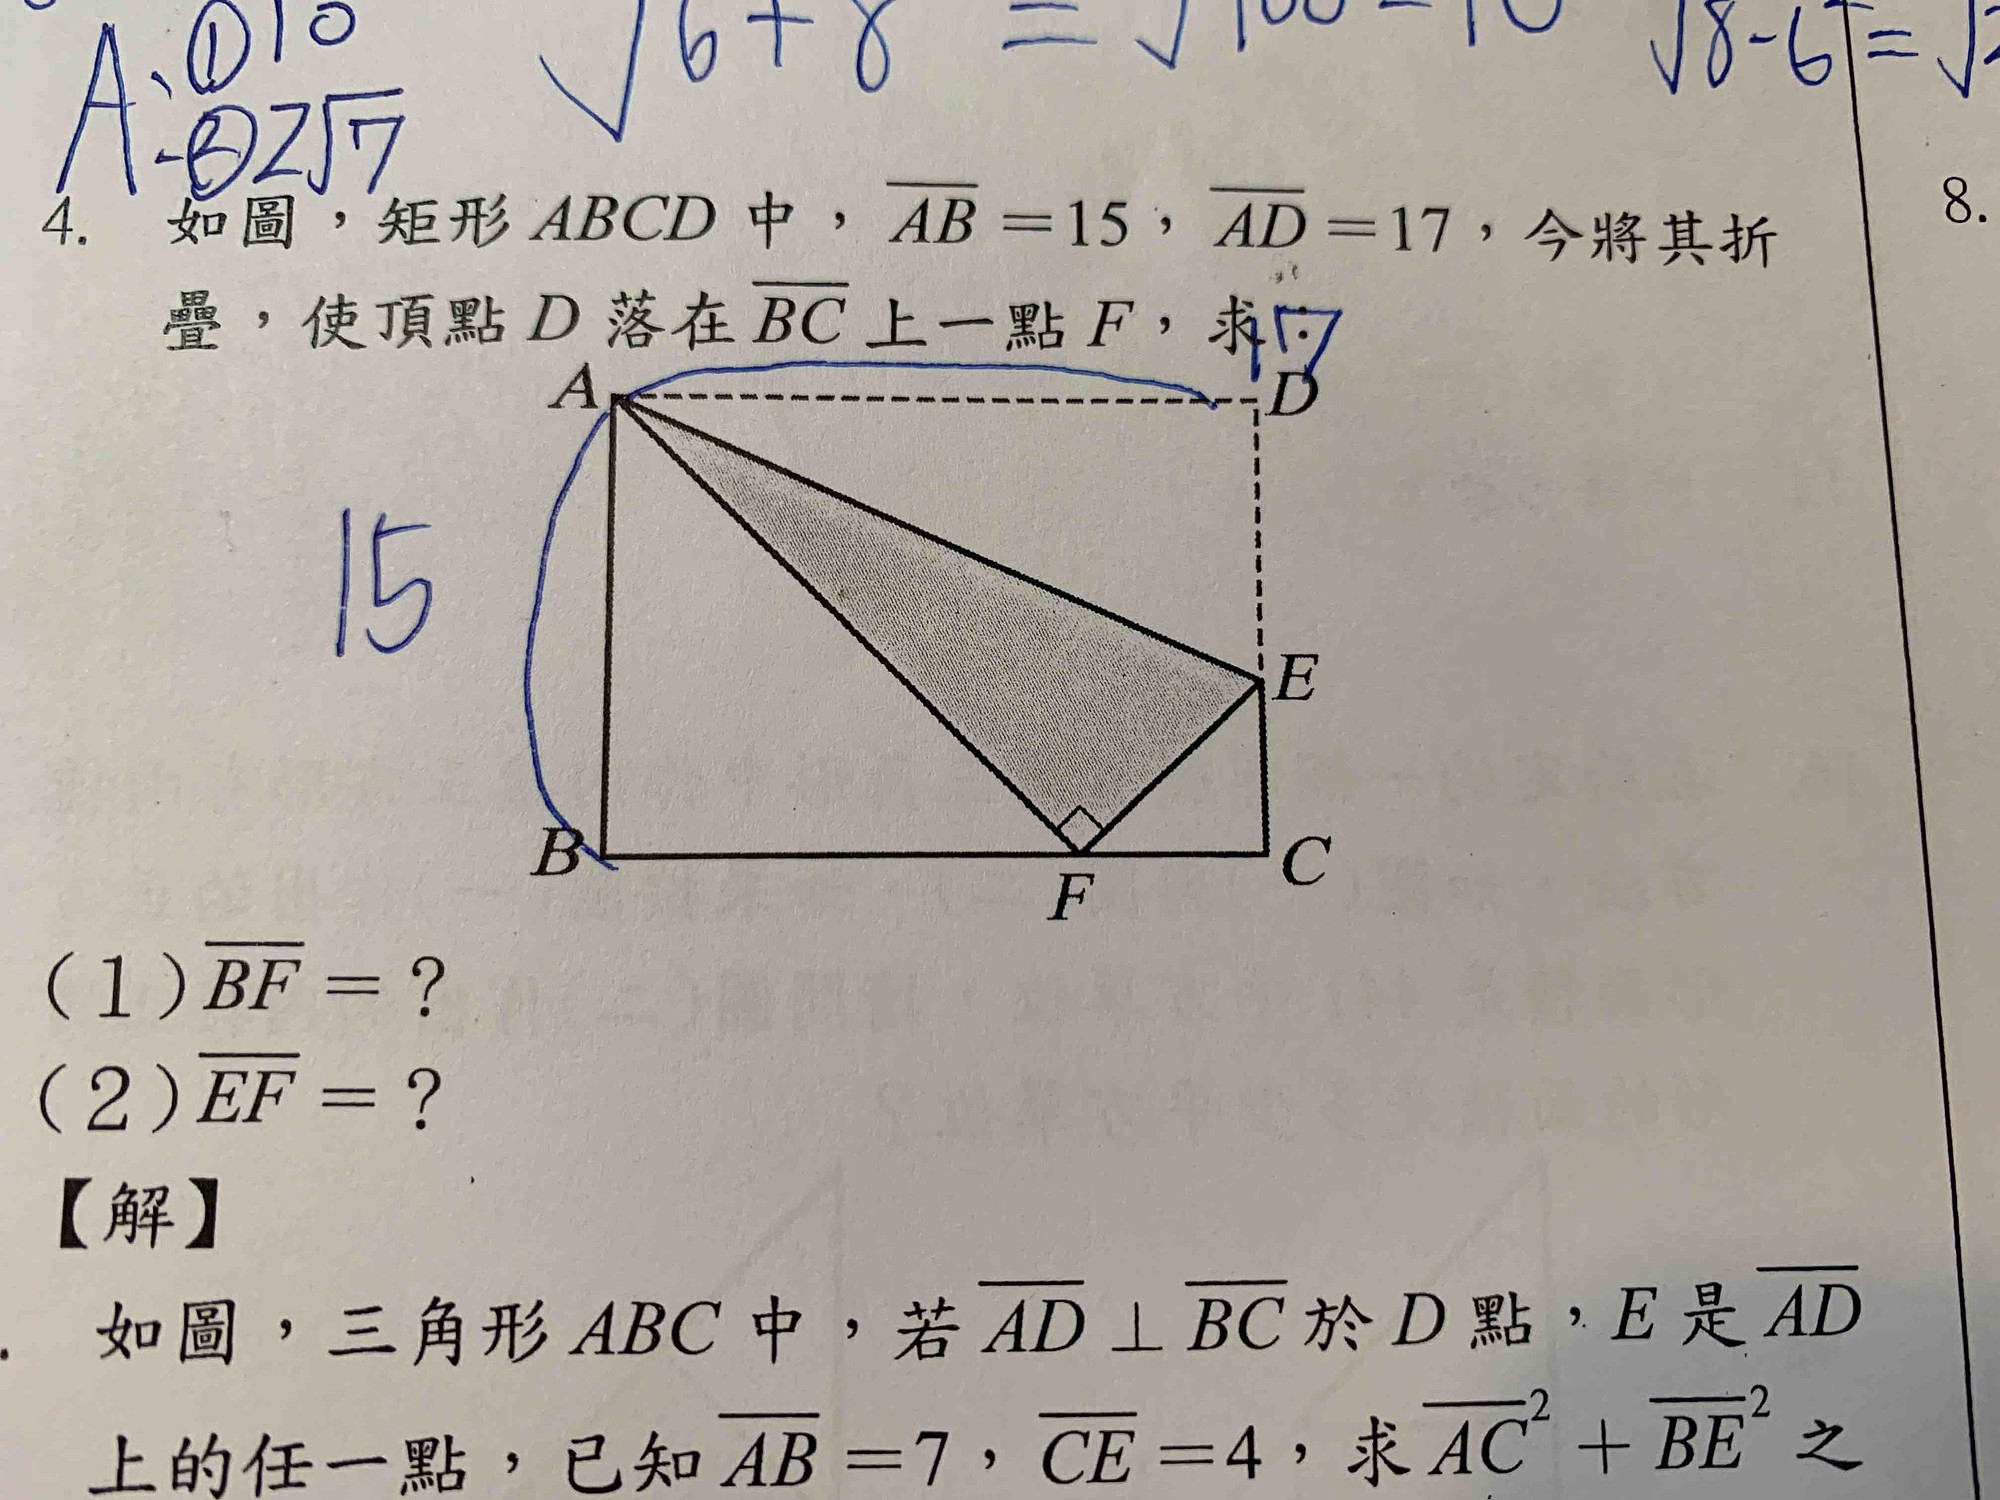 A、①10
②2√7
√6+8 = √100=10
√8-6=√2
4. 如圖，矩形 ABCD 中，AB=15，AD=17，今將其折
疊，使頂點 D 落在 BC 上一點 F，求：
17
A
D
15
E
B
C
F
(1) BF = ?
(2) EF = ?
【解】
如圖，三角形 ABC 中，若 AD⊥BC 於 D 點，E 是 AD
上的任一點，已知 AB=7，CE=4，求 AC²+BE² 之
8.